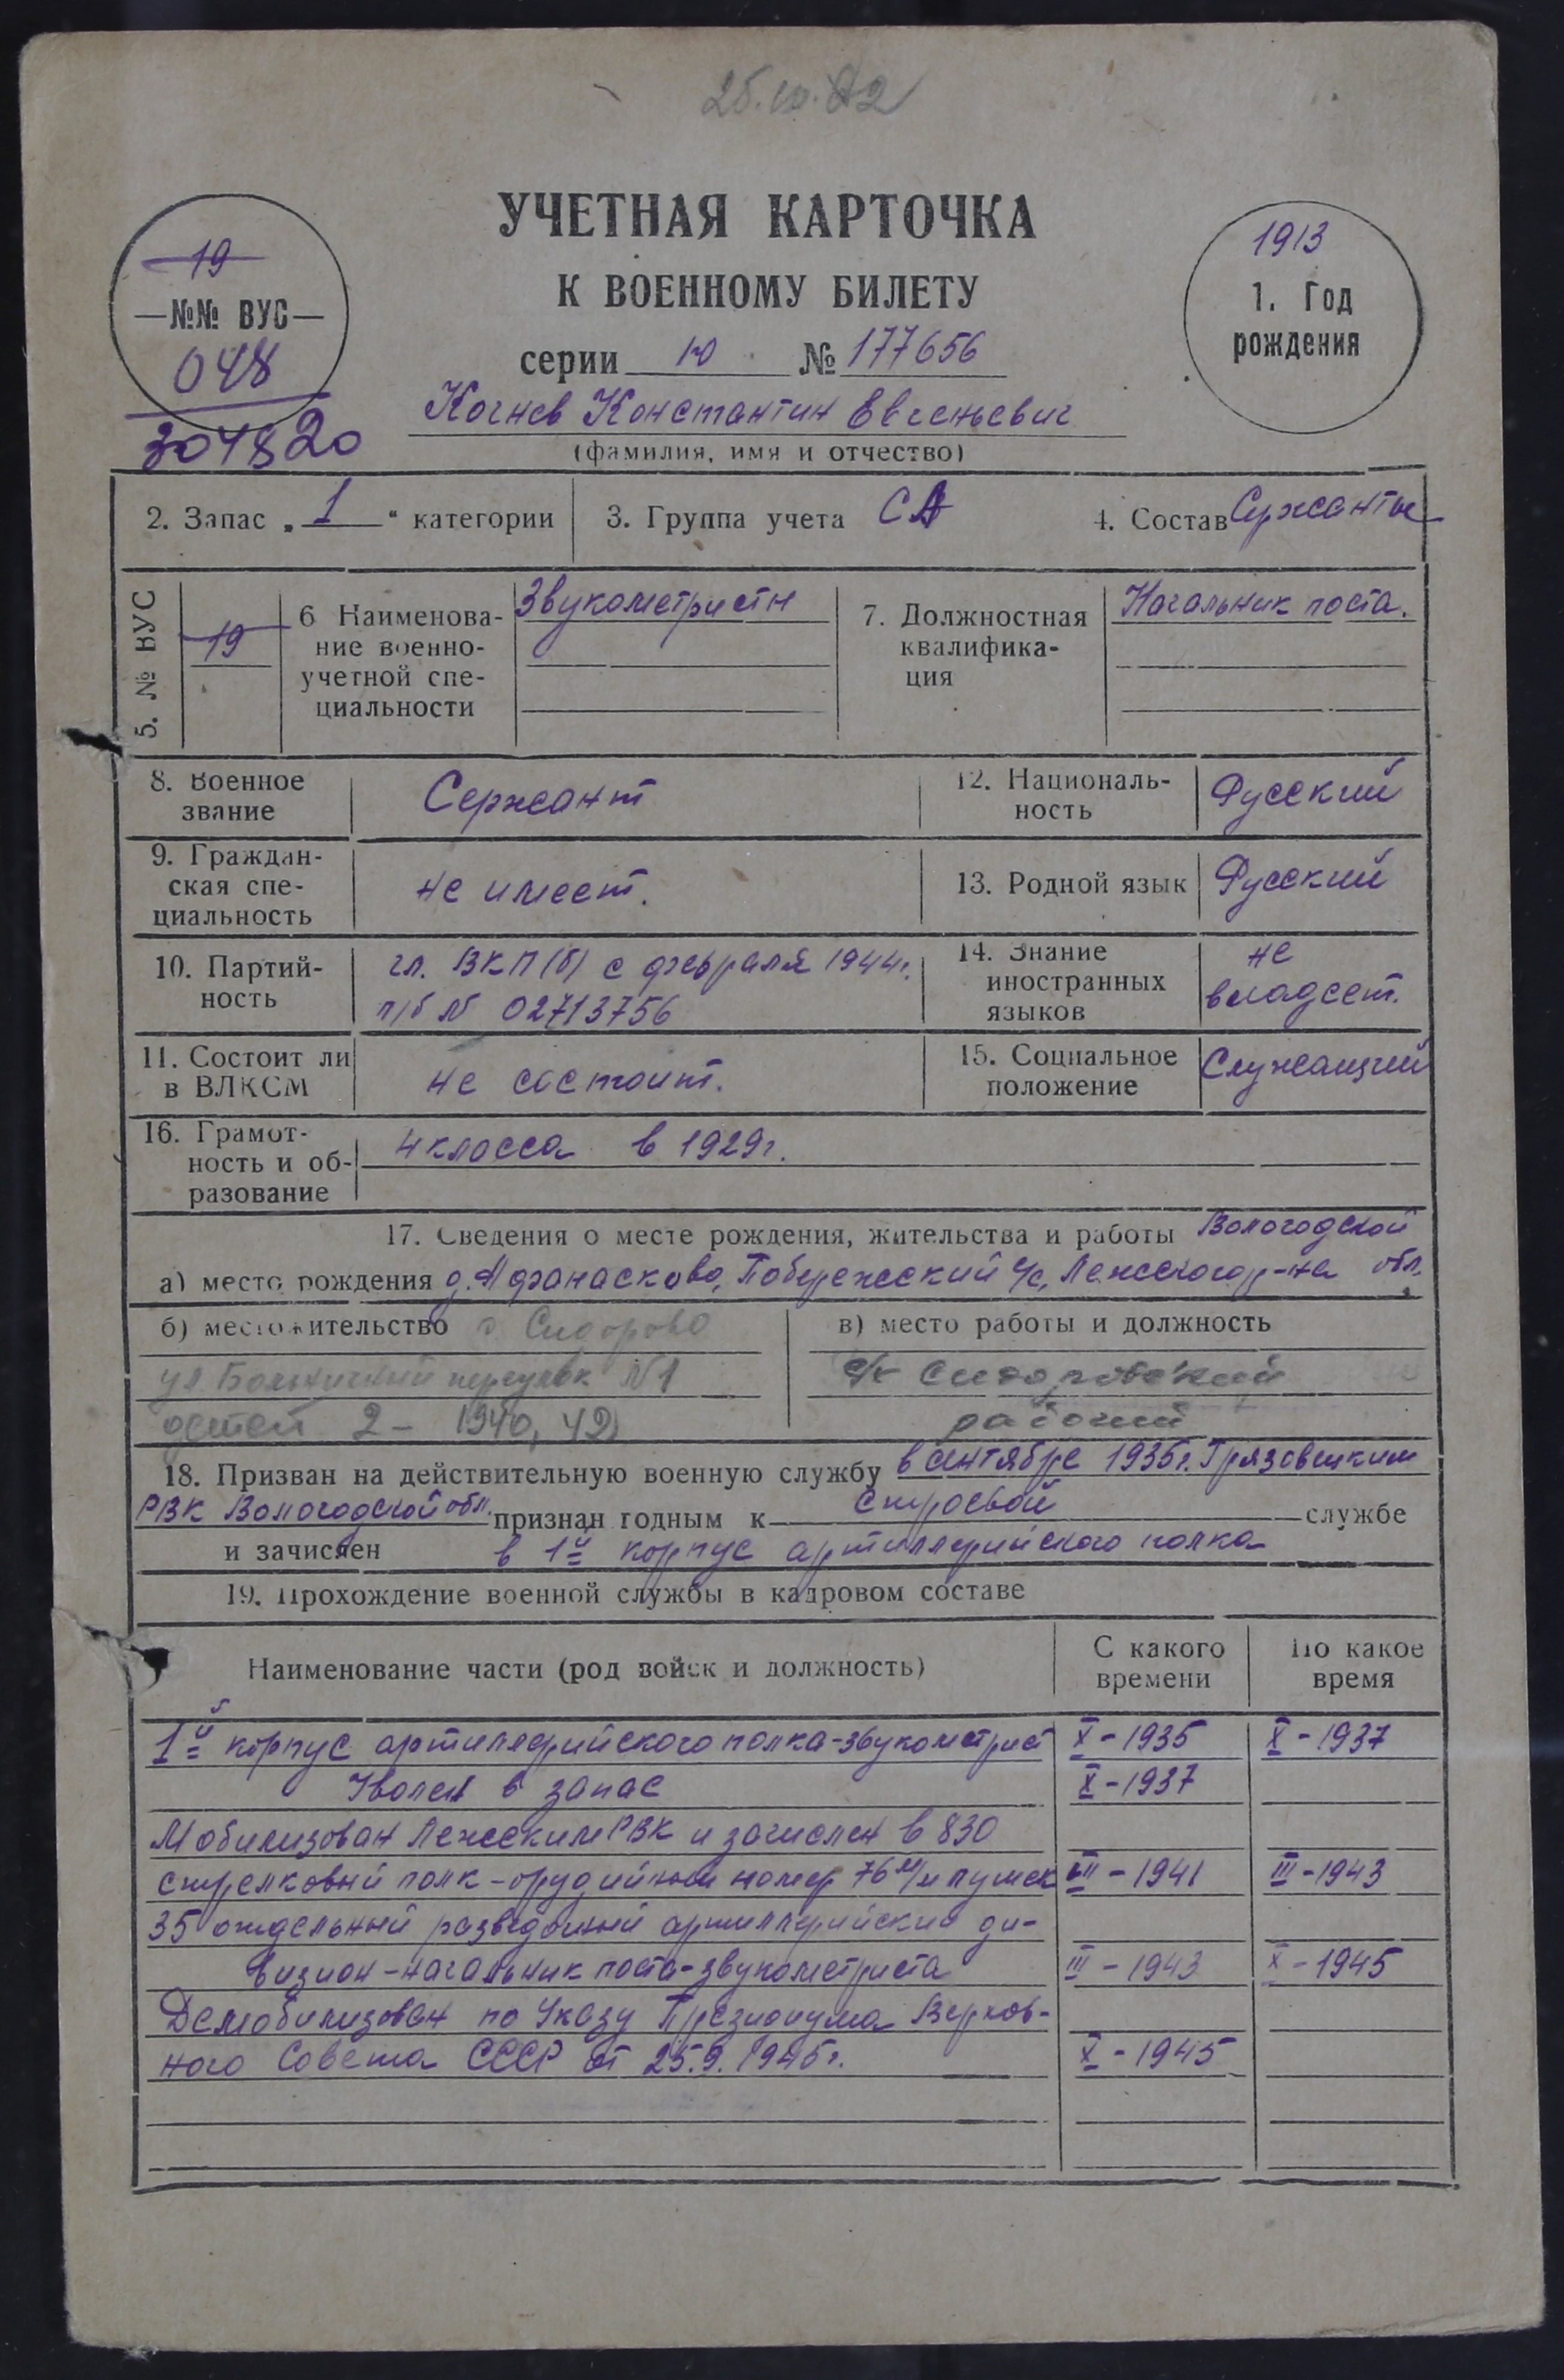 25.10.82
УЧЕТНАЯ КАРТОЧКА
К ВОЕННОМУ БИЛЕТУ
серии ю № 177656
19
№№ ВУС
048
304820
1913
1. Год
рождения
Кочнев Константин Евгеньевич
(фамилия, имя и отчество)
2. Запас „1“ категории
3. Группа учета СА
4. Состав Сержанты
5. № ВУС
19
6 Наименова-
ние военно-
учетной спе-
циальности
Звукометристы
7. Должностная
квалифика-
ция
Начальник поста.
8. Военное
звание
Сержант
12. Националь-
ность
Русский
9. Граждан-
ская спе-
циальность
не имеет.
13. Родной язык
Русский
10. Партий-
ность
чл. ВКП(б) с февраля 1944г.
п/б № 02713756
14. Знание
иностранных
языков
не
владеет.
11. Состоит ли
в ВЛКСМ
не состоит.
15. Социальное
положение
Служащий
16. Грамот-
ность и об-
разование
4 класса в 1929г.
17. Сведения о месте рождения, жительства и работы Вологодской
а) место рождения д. Афанасково, Побережский с/с, Лежского р-на обл.
б) местожительство с. Сидорово
ул. Больничный переулок №1
детей 2 - 1940, 42
в) место работы и должность
с/к Сидоровский
рабочий
18. Призван на действительную военную службу в сентябре 1935г. Грязовецким
РВК Вологодской обл. признан годным к строевой службе
и зачислен в 1й корпус артиллерийского полка
19. Прохождение военной службы в кадровом составе
Наименование части (род войск и должность)
С какого
времени
По какое
время
1й корпус артиллерийского полка-звукометрист X-1935 X-1937
Уволен в запас X-1937
Мобилизован Лежским РВК и зачислен в 830
стрелковый полк-орудийный номер 76 м/м пушек VIII-1941 III-1943
35 отдельный разведочный артиллерийский ди-
визион-начальник поста-звукометриста III-1943 X-1945
Демобилизован по Указу Президиума Верхов-
ного Совета СССР от 25.9.1945г. X-1945